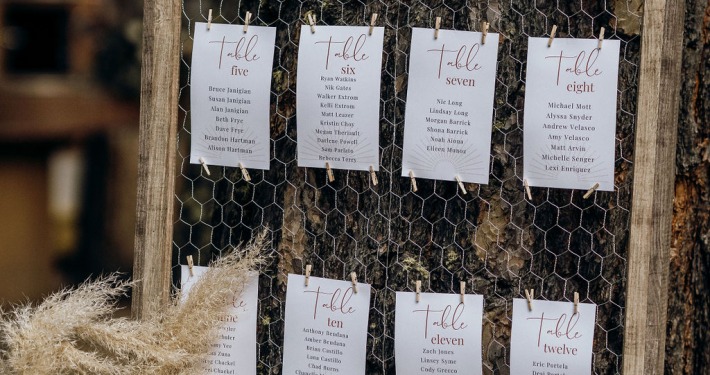 Table
five
Bruce Janigian
Susan Janigian
Alan Janigian
Beth Frye
Dave Frye
Brandon Hartman
Alison Hartman
Table
six
Ryan Watkins
Nik Gates
Walker Extrom
Kelli Extrom
Matt Leaver
Kristie Choy
Megan Theriault
Darlene Powell
Sam Parlato
Rebecca Torres
Table
seven
Nic Long
Lindsay Long
Morgan Barrick
Shona Barrick
Noah Aiona
Eileen Munoz
Table
eight
Michael Mott
Alyssa Snyder
Andrew Velasco
Amy Velasco
Matt Arvin
Michelle Senger
Lexi Enriquez
Table
ten
Anthony Bendana
Amber Bendana
Brian Castillo
Lana Castillo
Chad Burns
Table
eleven
Zach Jones
Linsey Syme
Cody Green
Table
twelve
Eric Portela